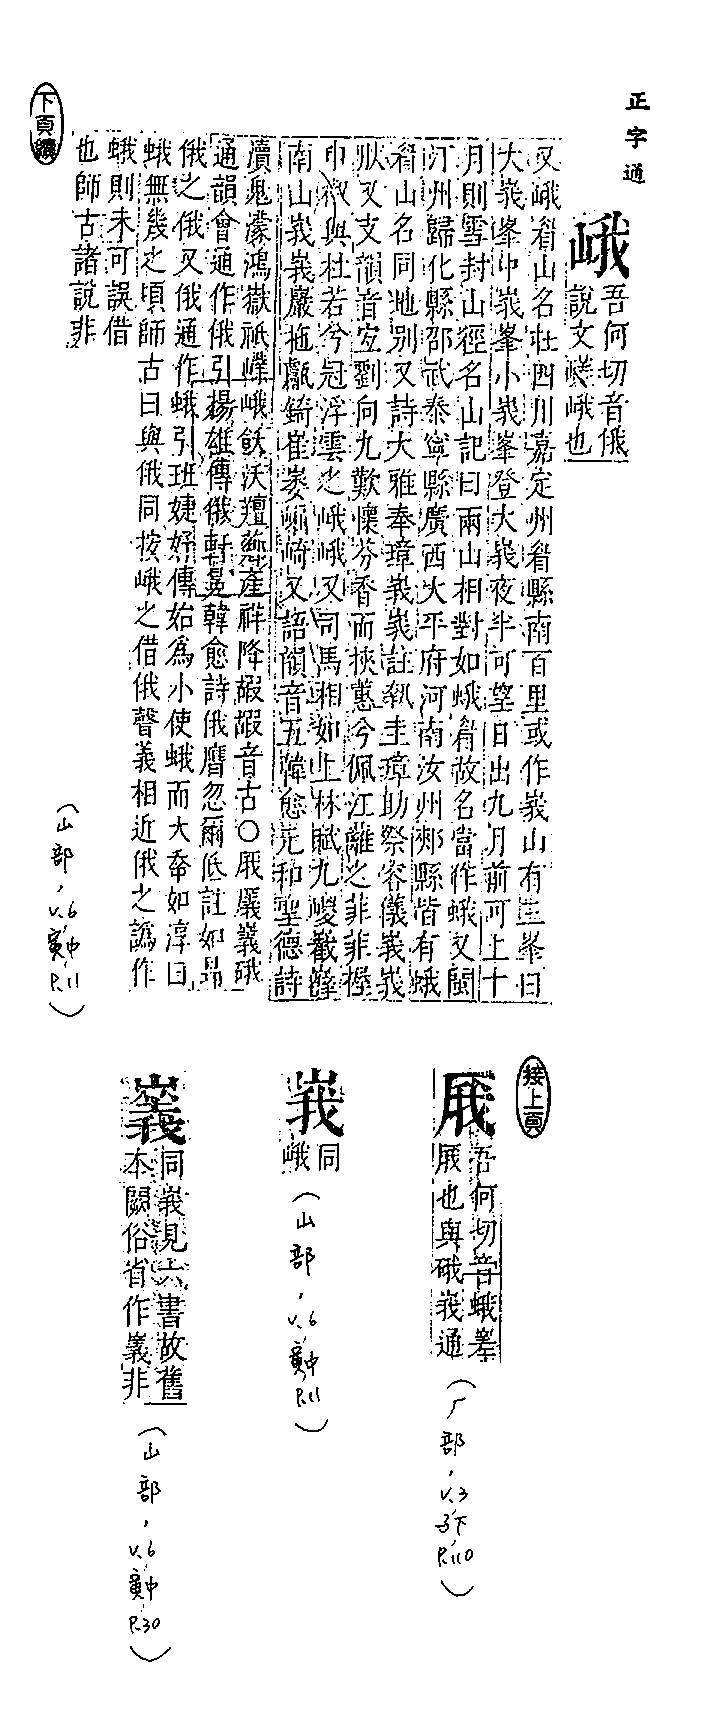 正字通
峨
吾何切音俄
說文嵯峨也
又峨眉山名在四川嘉定州眉縣南百里或作峩山有三峯曰
大峩峯中峩峯小峩峯登大峩夜半可望日出九月前可上十
月則雪封山徑名山記曰兩山相對如蛾眉故名當作蛾又閩
汀州歸化縣邵武泰寧縣廣西太平府河南汝州郟縣皆有蛾
眉山名同地別又詩大雅奉璋峩峩註執圭璋助祭容儀峩峩
狀又支韻音宜劉向九歎懷芬香而挾蕙兮佩江蘺之菲菲握
申椒與杜若兮冠浮雲之峨峨又司馬相如上林賦九嵕巀嶭
南山峩峩巖阤甗錡嶊崣崛崎又語韻音五韓愈元和聖德詩
瀆鬼濛鴻嶽祇嶪峨飫沃羶薌產祥降嘏嘏音古○厎㕒嶬硪
通韻會通作俄引揚雄傳俄軒冕韓愈詩俄膺忽爾低註如昻
俄之俄又俄通作蛾引班婕妤傳始爲小使蛾而大幸如淳曰
蛾無幾之頃師古曰與俄同按峨之借俄聲義相近俄之譌作
蛾則未可誤借
也師古諸說非
(山部,V.6寅中P.11)
下頁續
接上頁
厎
吾何切音蛾㟧
厎也與硪峩通
(厂部,V.3子下P.110)
峩
同
峨
(山部,V.6寅中P.11)
嶬
同峩見六書故舊
本闕俗省作嶬非
(山部,V.6寅中P.30)